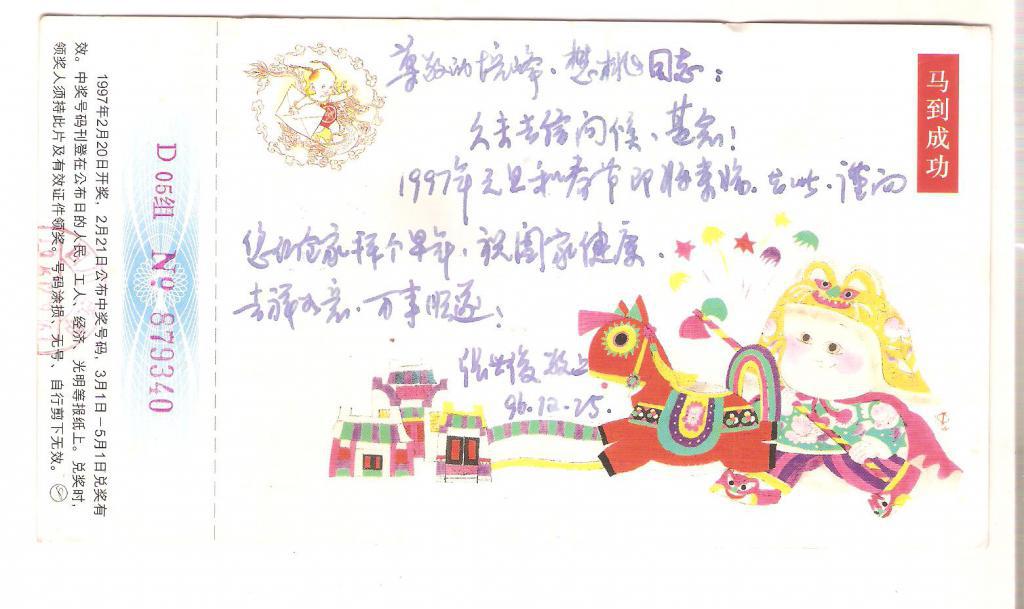 尊敬的培峰、楚桃同志：
久未去信问候、甚念！
1997年元旦和春节即将来临。在此、谨向
您和全家拜个早年，祝阖家健康、
吉祥如意、万事顺遂！
敬上
96.12.25.
马到成功
D 05组 № 879340
1997年2月20日开奖，2月21日公布中奖号码，3月1日－5月1日兑奖有
效。中奖号码刊登在公布日的人民、工人、经济、光明等报纸上。兑奖时，
领奖人须持此片及有效证件领奖。号码涂损、无号、自行剪下无效。